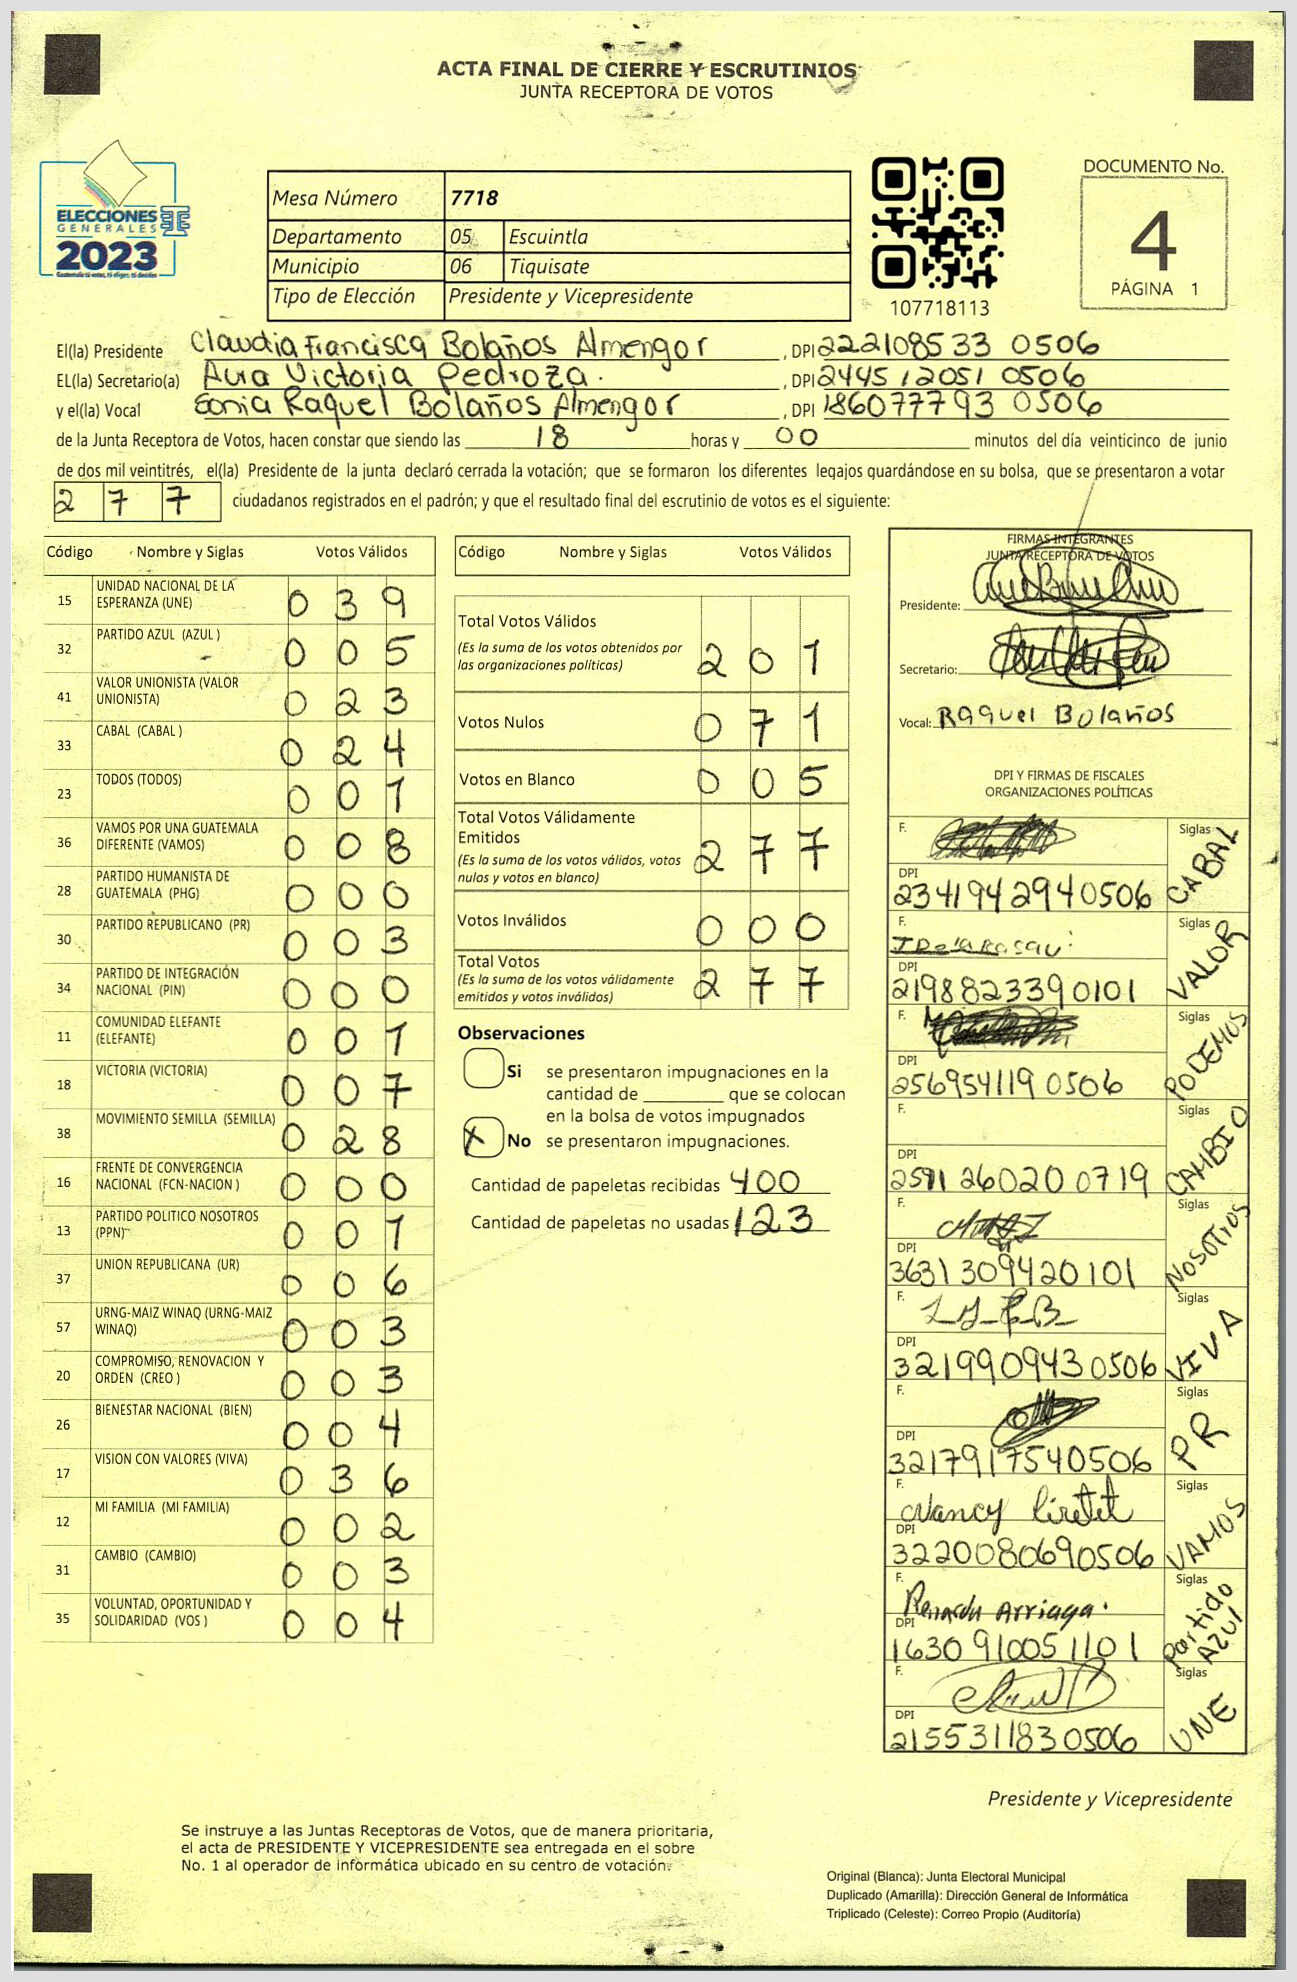 ACTA FINAL DE CIERRE Y ESCRUTINIOS
JUNTA RECEPTORA DE VOTOS
ELECCIONES
GENERALES
2023
Mesa Número 7718
Departamento 05 Escuintla
Municipio 06 Tiquisate
Tipo de Elección Presidente y Vicepresidente
107718113
DOCUMENTO No.
4
PÁGINA 1
El(la) Presidente Claudia Francisca Bolaños Almengor , DPI 222108533 0506
EL(la) Secretario(a) Aura Victoria Pedroza. , DPI 2445 12051 0506
y el(la) Vocal Sonia Raquel Bolaños Almengor , DPI 186077793 0506
de la Junta Receptora de Votos, hacen constar que siendo las 18 horas y 00 minutos del día veinticinco de junio
de dos mil veintitrés, el(la) Presidente de la junta declaró cerrada la votación; que se formaron los diferentes legajos guardándose en su bolsa, que se presentaron a votar
2 7 7 ciudadanos registrados en el padrón; y que el resultado final del escrutinio de votos es el siguiente:
Código Nombre y Siglas Votos Válidos
15 UNIDAD NACIONAL DE LA ESPERANZA (UNE) 0 3 9
32 PARTIDO AZUL (AZUL ) 0 0 5
41 VALOR UNIONISTA (VALOR UNIONISTA) 0 2 3
33 CABAL (CABAL ) 0 2 4
23 TODOS (TODOS) 0 0 1
36 VAMOS POR UNA GUATEMALA DIFERENTE (VAMOS) 0 0 8
28 PARTIDO HUMANISTA DE GUATEMALA (PHG) 0 0 0
30 PARTIDO REPUBLICANO (PR) 0 0 3
34 PARTIDO DE INTEGRACIÓN NACIONAL (PIN) 0 0 0
11 COMUNIDAD ELEFANTE (ELEFANTE) 0 0 1
18 VICTORIA (VICTORIA) 0 0 7
38 MOVIMIENTO SEMILLA (SEMILLA) 0 2 8
16 FRENTE DE CONVERGENCIA NACIONAL (FCN-NACION ) 0 0 0
13 PARTIDO POLITICO NOSOTROS (PPN) 0 0 1
37 UNION REPUBLICANA (UR) 0 0 6
57 URNG-MAIZ WINAQ (URNG-MAIZ WINAQ) 0 0 3
20 COMPROMISO, RENOVACION Y ORDEN (CREO ) 0 0 3
26 BIENESTAR NACIONAL (BIEN) 0 0 4
17 VISION CON VALORES (VIVA) 0 3 6
12 MI FAMILIA (MI FAMILIA) 0 0 2
31 CAMBIO (CAMBIO) 0 0 3
35 VOLUNTAD, OPORTUNIDAD Y SOLIDARIDAD (VOS ) 0 0 4
Código Nombre y Siglas Votos Válidos
Total Votos Válidos
(Es la suma de los votos obtenidos por las organizaciones políticas) 2 0 1
Votos Nulos 0 7 1
Votos en Blanco 0 0 5
Total Votos Válidamente Emitidos
(Es la suma de los votos válidos, votos nulos y votos en blanco) 2 7 7
Votos Inválidos 0 0 0
Total Votos
(Es la suma de los votos válidamente emitidos y votos inválidos) 2 7 7
Observaciones
Si se presentaron impugnaciones en la
cantidad de ________ que se colocan
en la bolsa de votos impugnados
X No se presentaron impugnaciones.
Cantidad de papeletas recibidas 400
Cantidad de papeletas no usadas 123
FIRMAS INTEGRANTES
JUNTA RECEPTORA DE VOTOS
Presidente:
Secretario:
Vocal: Raquel Bolaños
DPI Y FIRMAS DE FISCALES
ORGANIZACIONES POLÍTICAS
F. Siglas CABAL
DPI 2341942940506
F. Siglas VALOR
DPI 2198823390101
F. Siglas PODEMOS
DPI 256954119 0506
F. Siglas CAMBIO
DPI 2591 26020 0719
F. Siglas NOSOTROS
DPI 3631309420101
F. Siglas VIVA
DPI 3219909430506
F. Siglas PR
DPI 3217917540506
F. Nancy Siglas VAMOS
DPI 3220080690506
F. Arriaga. Siglas Partido AZUL
DPI 1630 91005 1101
F. Siglas UNE
DPI 2155311830506
Presidente y Vicepresidente
Se instruye a las Juntas Receptoras de Votos, que de manera prioritaria,
el acta de PRESIDENTE Y VICEPRESIDENTE sea entregada en el sobre
No. 1 al operador de informática ubicado en su centro de votación.
Original (Blanca): Junta Electoral Municipal
Duplicado (Amarilla): Dirección General de Informática
Triplicado (Celeste): Correo Propio (Auditoría)